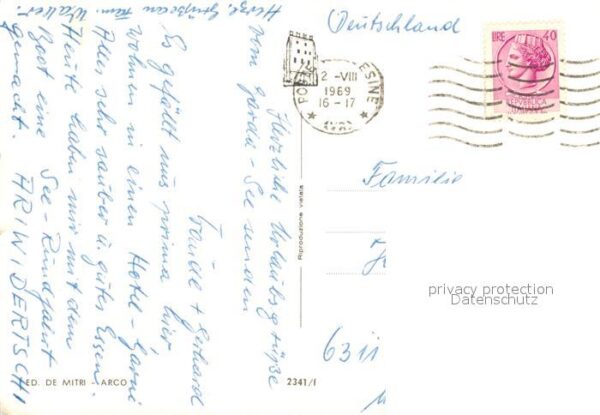 Herzliche Urlaubsgrüße
vom Garda-See senden
Traudl + Gerhard
Es gefällt uns prima hier
wohnen in einem Hotel-Garni
Alles sehr sauber u. gutes Essen.
Heute haben wir mit dem
Boot eine See-Rundfahrt
gemacht. ARIWIDERTSCHI
Herzl. Grüße an Fam. Walker.
Deutschland
2 -VIII
1969
16-17
LIRE 40
REPVBBLICA
ITALIANA
Familie
privacy protection
Datenschutz
Riproduzione vietata
ED. DE MITRI - ARCO
2341/